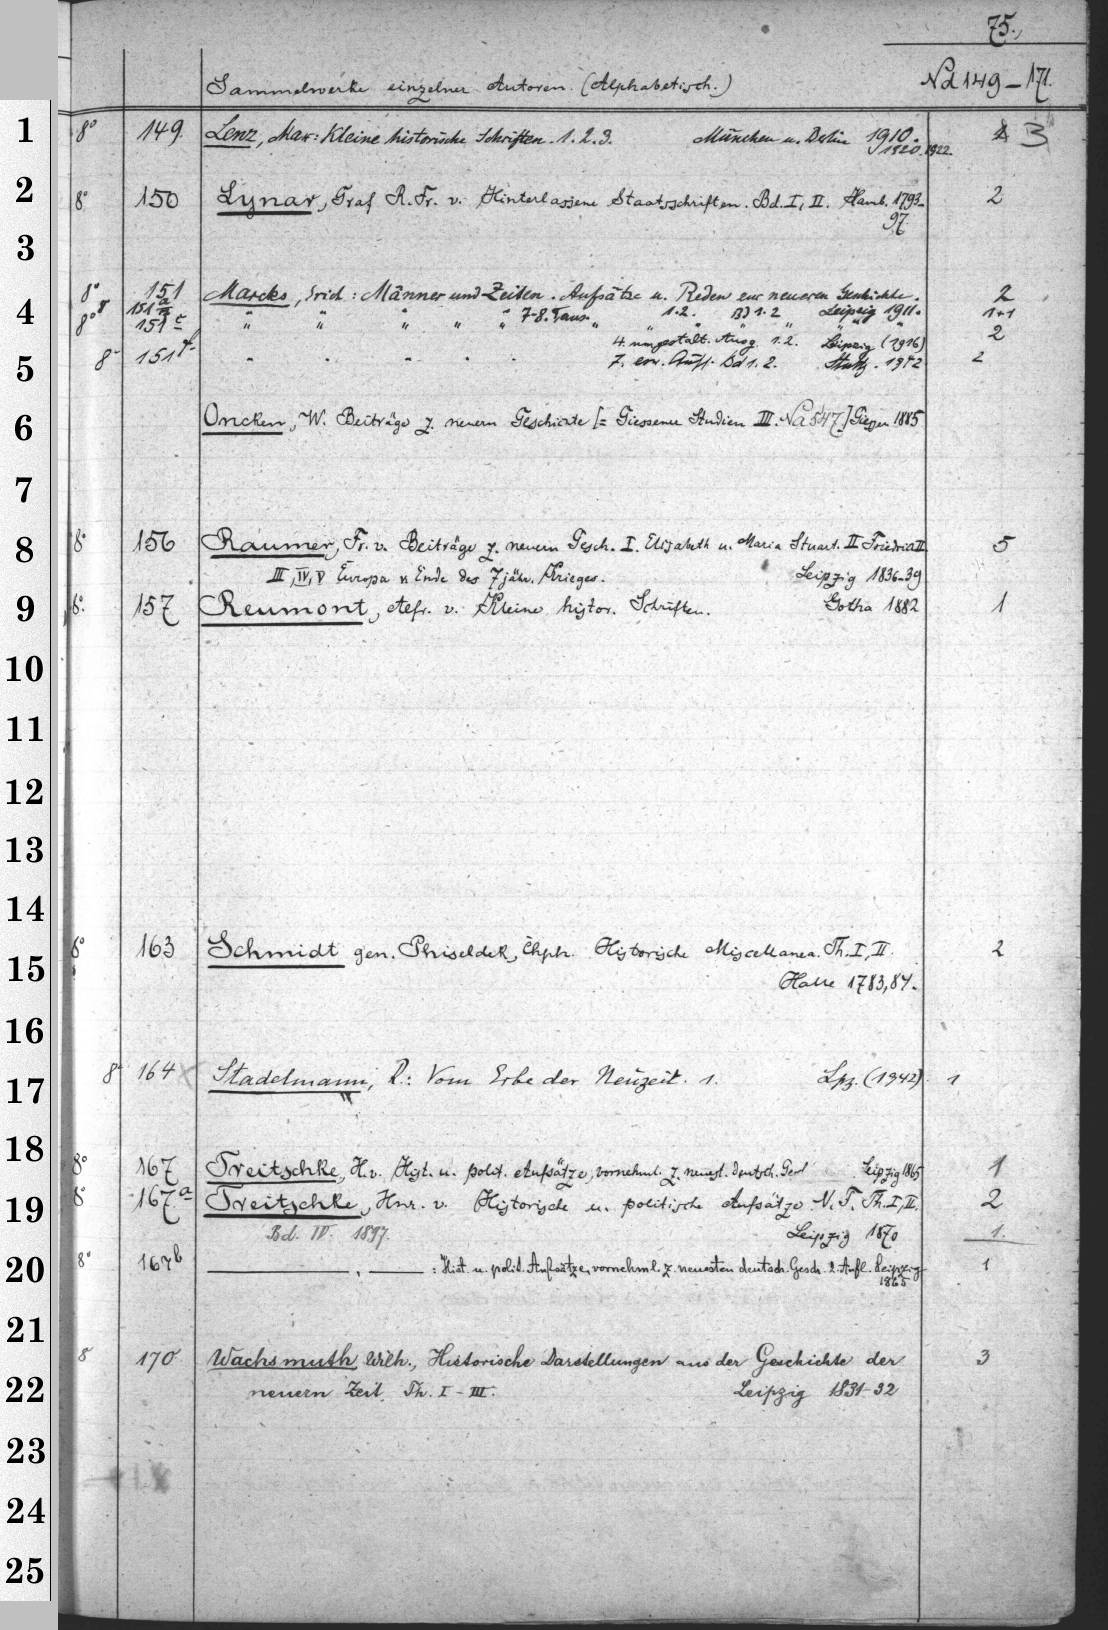 75.
Sammelwerke einzelner Autoren. (Alphabetisch.) Nd 149–171.
1 8° 149. Lenz, Max: Kleine historische Schriften. 1. 2. 3. München u. Berlin 1910. 3
1920. 1922.
2 8° 150 Lynar, Graf R. Fr. v. Hinterlassene Staatsschriften. Bd. I, II. Hamb. 1793– 2
97.
3
8° 151 Marcks, Erich: Männer und Zeiten. Aufsätze u. Reden zur neueren Geschichte. 2
4 151 a " " " " " 7-8. Taus. 1.2. Bd 1.2 Leipzig 1911. 1+1
8° 151 c " " " " " "
4. umgestalt. Ausg. 1. 2. Leipzig (1916) 2
5 8° 151 7. erw. Aufl. Bd 1. 2. Stuttg. 1942 2
6 Oncken, W. Beiträge z. neuern Geschichte [= Giessener Studien III. Na 547] Giessen 1885
7
8 8° 156 Raumer, Fr. v. Beiträge z. neuern Gesch. I. Elizabeth u. Maria Stuart. II Friedrich II 5
III, IV, V Europa v. Ende des 7jähr. Krieges. Leipzig 1836–39
9 8° 157 Reumont, Alfr. v. Kleine histor. Schriften. Gotha 1882 1
10
11
12
13
14
15 8° 163 Schmidt gen. Phiseldek, Chph. Historische Miscellanea. Th. I, II. 2
Halle 1783, 84.
16
17 8° 164 Stadelmann, R.: Vom Erbe der Neuzeit. 1. Lpz. (1942) 1
18 8° 167 Treitschke, H. v. Hist. u. polit. Aufsätze, vornehml. z. neuest. deutsch. Gesch Leipzig 1865 1
19 8° 167a Treitschke, Hnr. v. Historische u. politische Aufsätze N. F. Th. I, II. 2
Bd. IV. 1897. Leipzig 1870 1.
20 8° 167b ———, ——— : Hist. u. polit. Aufsätze, vornehml. z. neuesten deutsch. Gesch. 2. Aufl. Leipzig 1
1865
21
8° 170 Wachsmuth, Wilh., Historische Darstellungen aus der Geschichte der 3
22 neuern Zeit. Th. I – III. Leipzig 1831–32
23
24
25